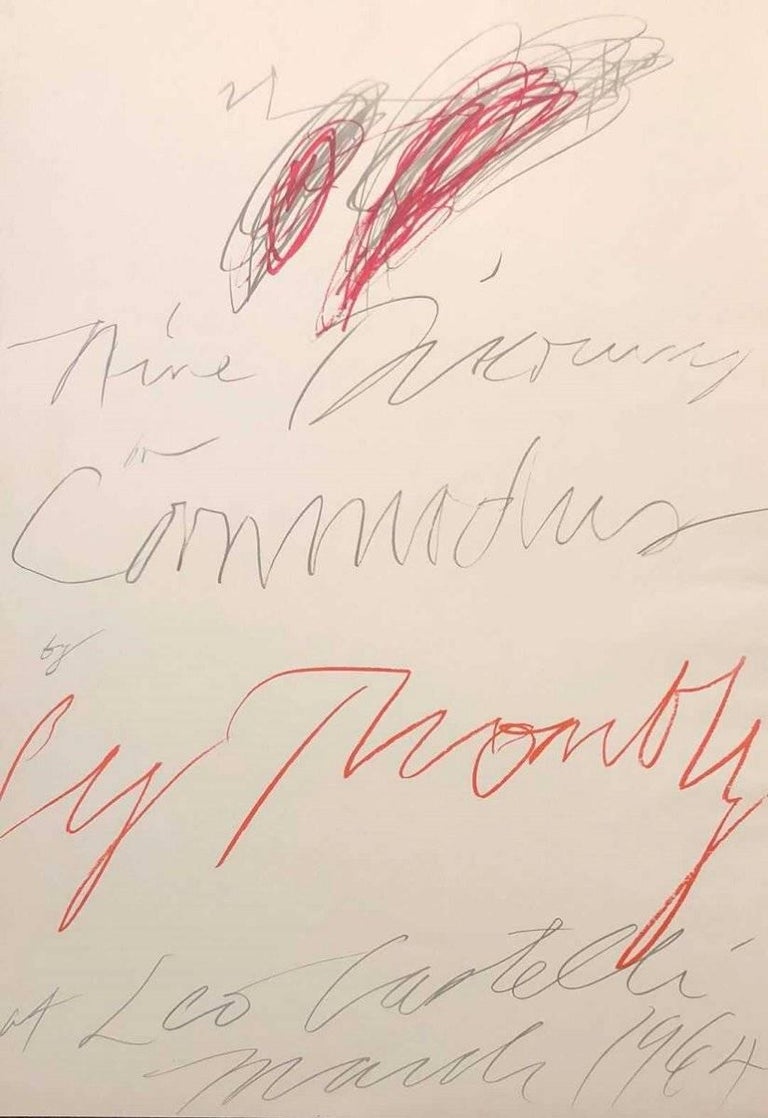 Nine Discourses
on
Commodus
by
Cy Twombly
at Leo Castelli
March 1964